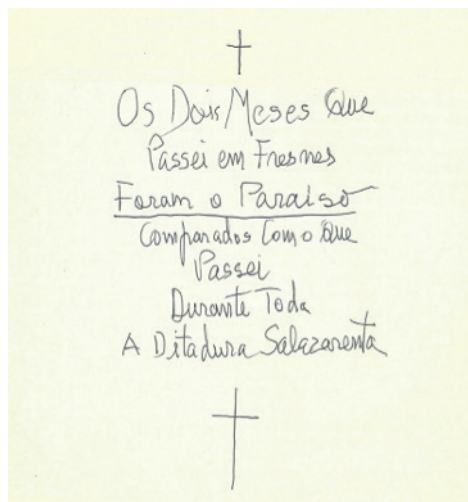 Os Dois Meses Que
Passei em Fresnes
Foram o Paraíso
Comparados Com o Que
Passei
Durante Toda
A Ditadura Salazarenta